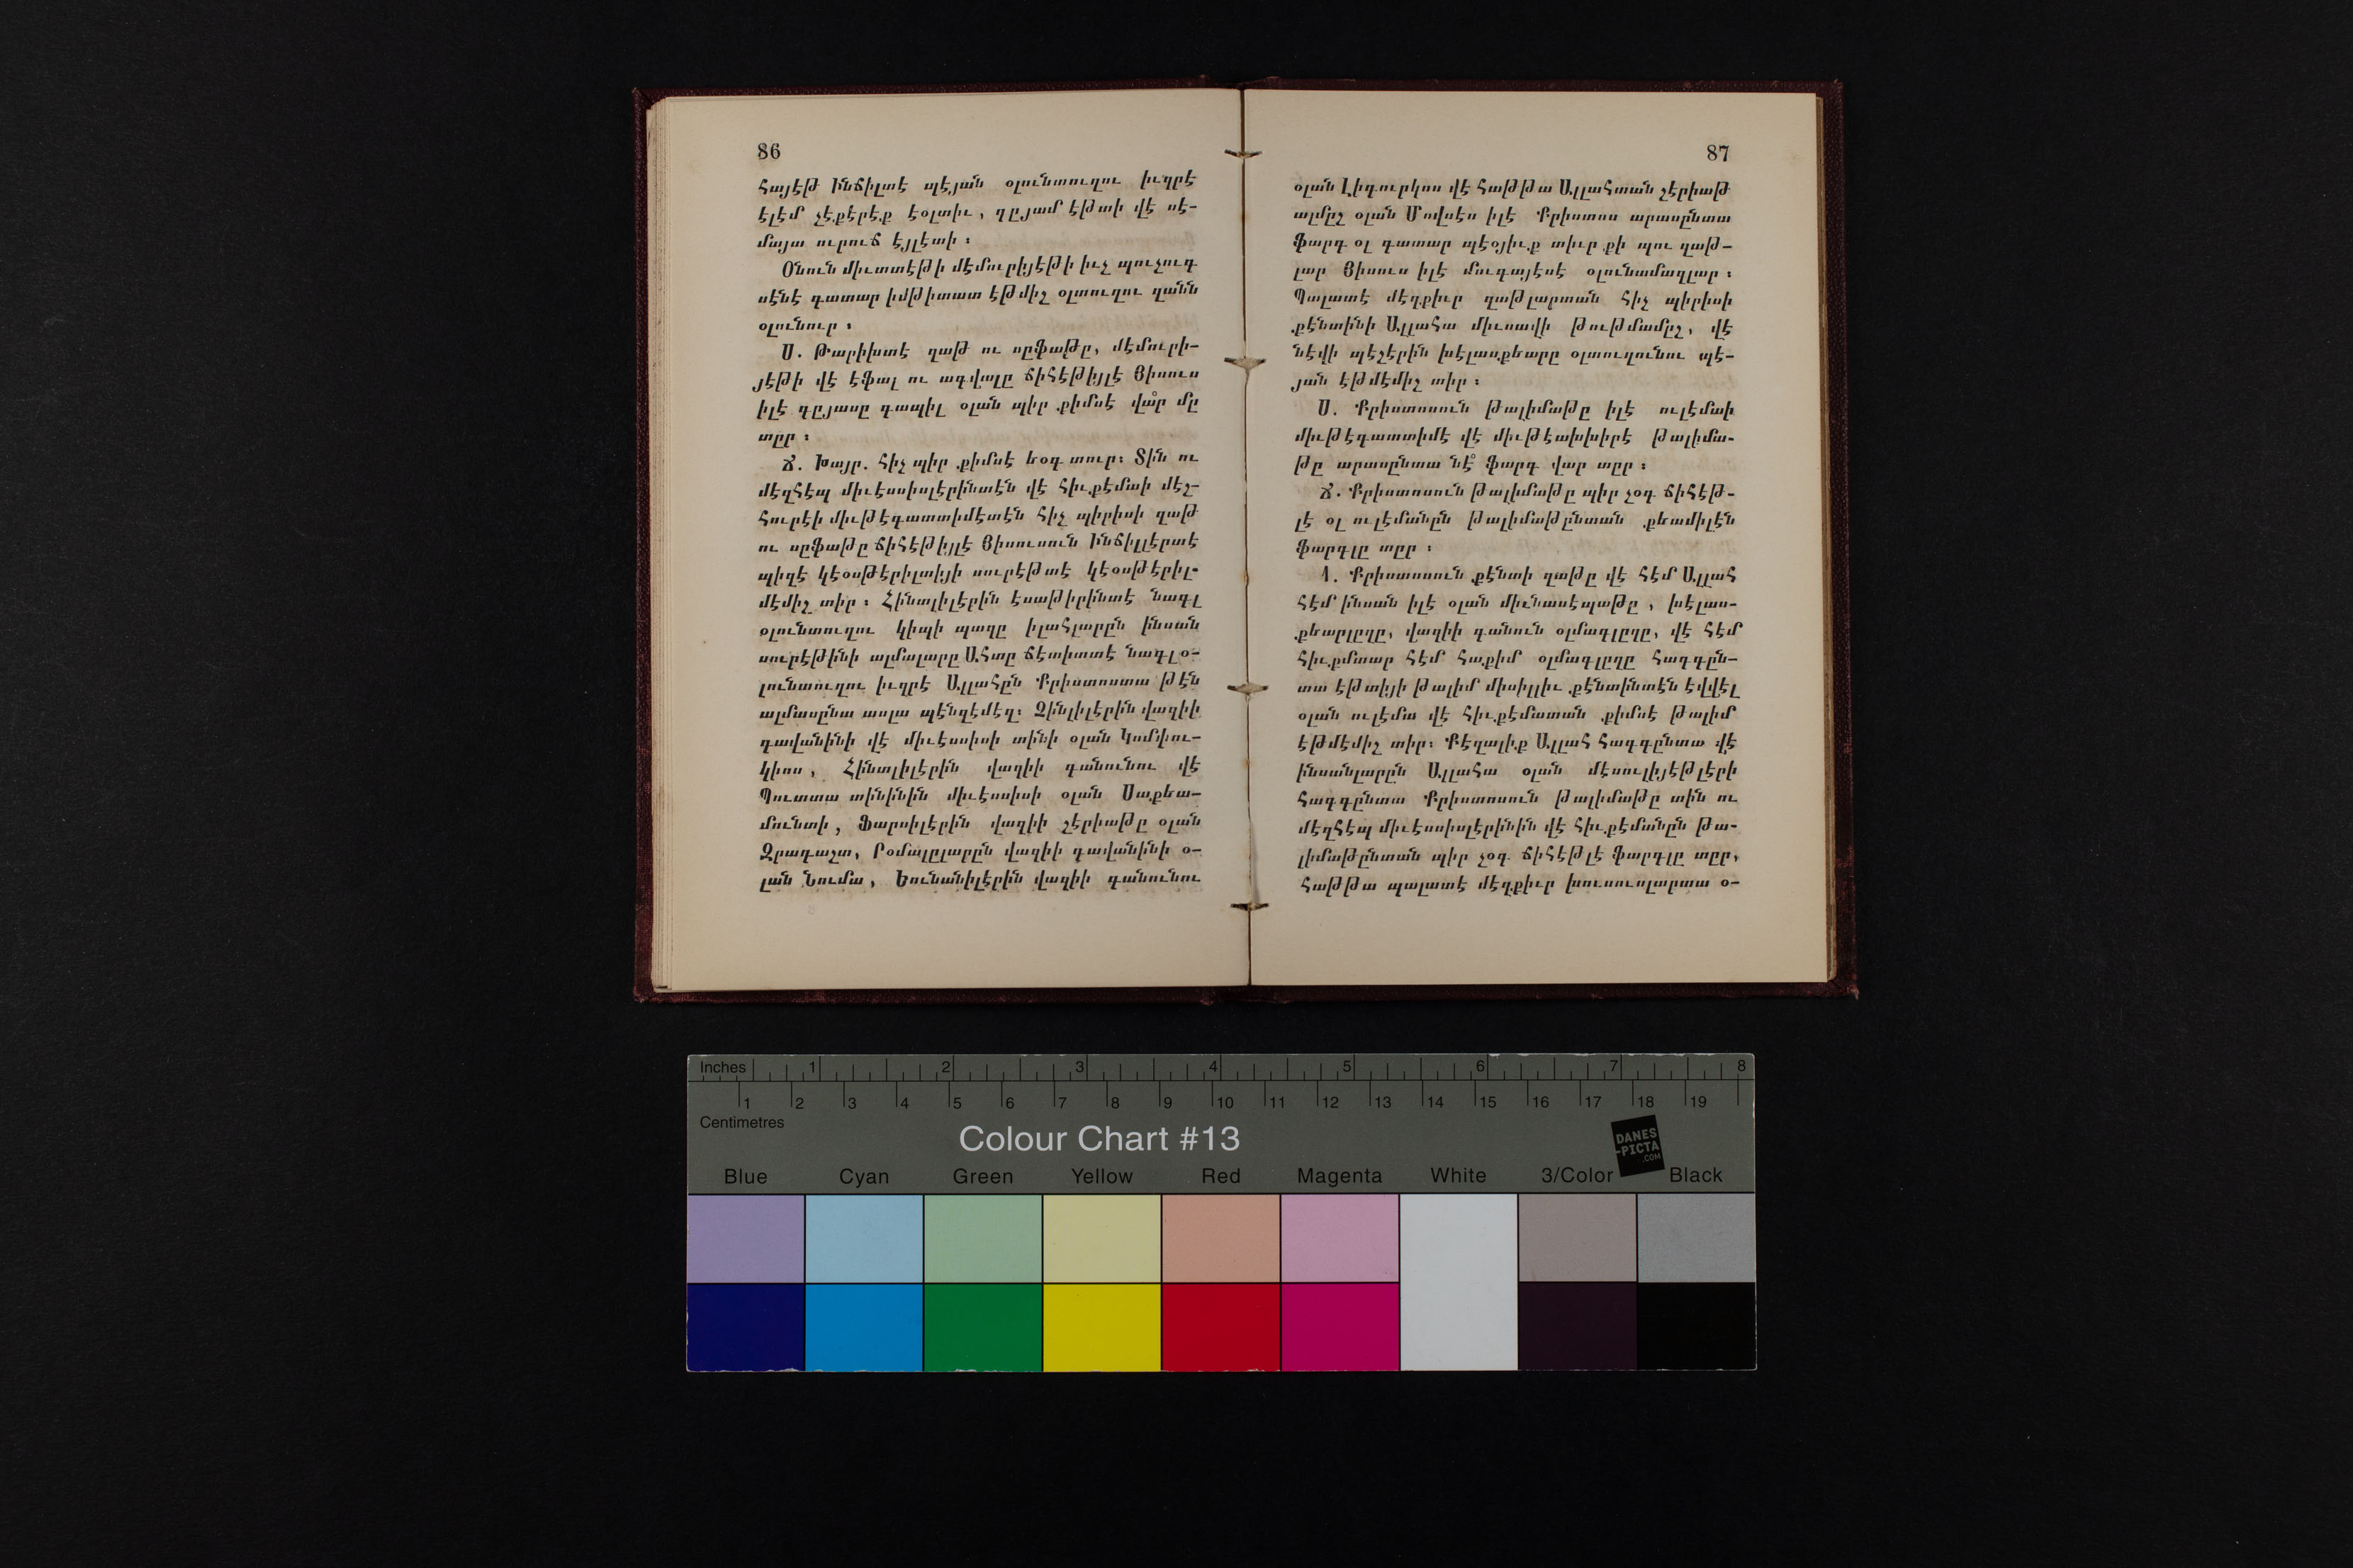 86
հայէթ Ինճիլտէ պէյան օլունտուղու իւզրէ
էլէմ չէքէրէք էօլտիւ, ղըյամ էթտի վէ սէ-
մայա ուրուճ էյլէտի ։
Օնուն միւտտէթի մէմուրիյէթի իւչ պուչուգ
սէնէ գատար իմթիտատ էթմիշ օլտուղու զանն
օլունուր ։
Ս. Թարիխտէ զաթ ու սըֆաթը, մէմուրի-
յէթի վէ էֆալ ու ագվալը ճիհէթիյլէ Յիսուս
իլէ գըյասը գապիլ օլան պիր քիմսէ վա՞ր մը
տըր ։
Ճ. Խայր. հիչ պիր քիմսէ եօգ տուր։ Տին ու
մէզհէպ միւէսսիսլէրինտէն վէ հիւքէմաի մէշ-
հուրէի միւթէգատտիմէտէն հիչ պիրիսի զաթ
ու սըֆաթը ճիհէթիյլէ Յիսուսուն Ինճիլլէրտէ
պիզէ կէօսթէրիլտիյի սուրէթտէ կէօսթէրիլ-
մէմիշ տիր ։ Հինտլիլէրին էսաթիրինտէ նագլ
օլունտուղու կիպի պազը իլահլարըն ինսան
սուրէթինի ալմալարը Ահտը ճէտիտտէ նագլ օ-
լունտուղու իւզրէ Ալլահըն Քրիստոստա թէն
ալմասընա ասլա պէնզէմէզ։ Չինլիլէրին վազիի
գավանինի վէ միւէսսիսի տինի օլան Կոմփիւ-
կիոս, Հինտլիլէրին վազիի գանունու վէ
Պուտտա տինինին միւէսսիսի օլան Սաքեա-
մունտի, Ֆարսիլէրին վազիի շէրիաթը օլան
Զրադաշտ, Րօմալըլարըն վազիի գավանինի օ-
լան Նումա, Եունանիլէրին վազիի գանունու
87
օլան Լիգուրկոս վէ հաթթա Ալլահտան շէրիաթ
ալմըշ օլան Մովսէս իլէ Քրիստոս արասընտա
ֆարգ օլ գատար պէօյիւք տիւր քի պու զաթ-
լար Յիսուս իլէ մուգայէսէ օլունամազլար ։
Պալատէ մէզքիւր զաթլարտան հիչ պիրիսի
քէնտինի Ալլահա միւսավի թութմամըշ, վէ
նէվի պէշէրին խէլասքեարը օլտուղունու պէ-
յան էթմէմիշ տիր ։
Ս. Քրիստոսուն թալիմաթը իլէ ուլէմաի
միւթէգատտիմէ վէ միւթէախխիրէ թալիմա-
թը արասընտա նէ՞ ֆարգ վար տըր ։
Ճ. Քրիստոսուն թալիմաթը պիր չօգ ճիհէթ-
լէ օլ ուլէմանըն թալիմաթընտան քեամիլէն
ֆարգլը տըր ։
1. Քրիստոսուն քէնտի զաթը վէ հէմ Ալլահ
հէմ ինսան իլէ օլան միւնասէպաթը, խէլաս-
քեարլըղը, վազիի գանուն օլմագլըղը, վէ հէմ
հիւքմտար հէմ հաքիմ օլմագլըղը հագգըն-
տա էթտիյի թալիմ միսիլլիւ քէնտինտէն էվվէլ
օլան ուլէմա վէ հիւքէմատան քիմսէ թալիմ
էթմէմիշ տիր։ Քէզալիք Ալլահ հագգընտա վէ
ինսանլարըն Ալլահա օլան մէսուլիյէթլէրի
հագգընտա Քրիստոսուն թալիմաթը տին ու
մէզհէպ միւէսսիսլէրինին վէ հիւքէմանըն թա-
լիմաթընտան պիր չօգ ճիհէթլէ ֆարգլը տըր,
հաթթա պալատէ մէզքիւր խուսուսլարտա օ-
Inches 1 2 3 4 5 6 7 8
1 2 3 4 5 6 7 8 9 10 11 12 13 14 15 16 17 18 19
Centimetres
Colour Chart #13
DANES
-PICTA
.COM
Blue Cyan Green Yellow Red Magenta White 3/Color Black